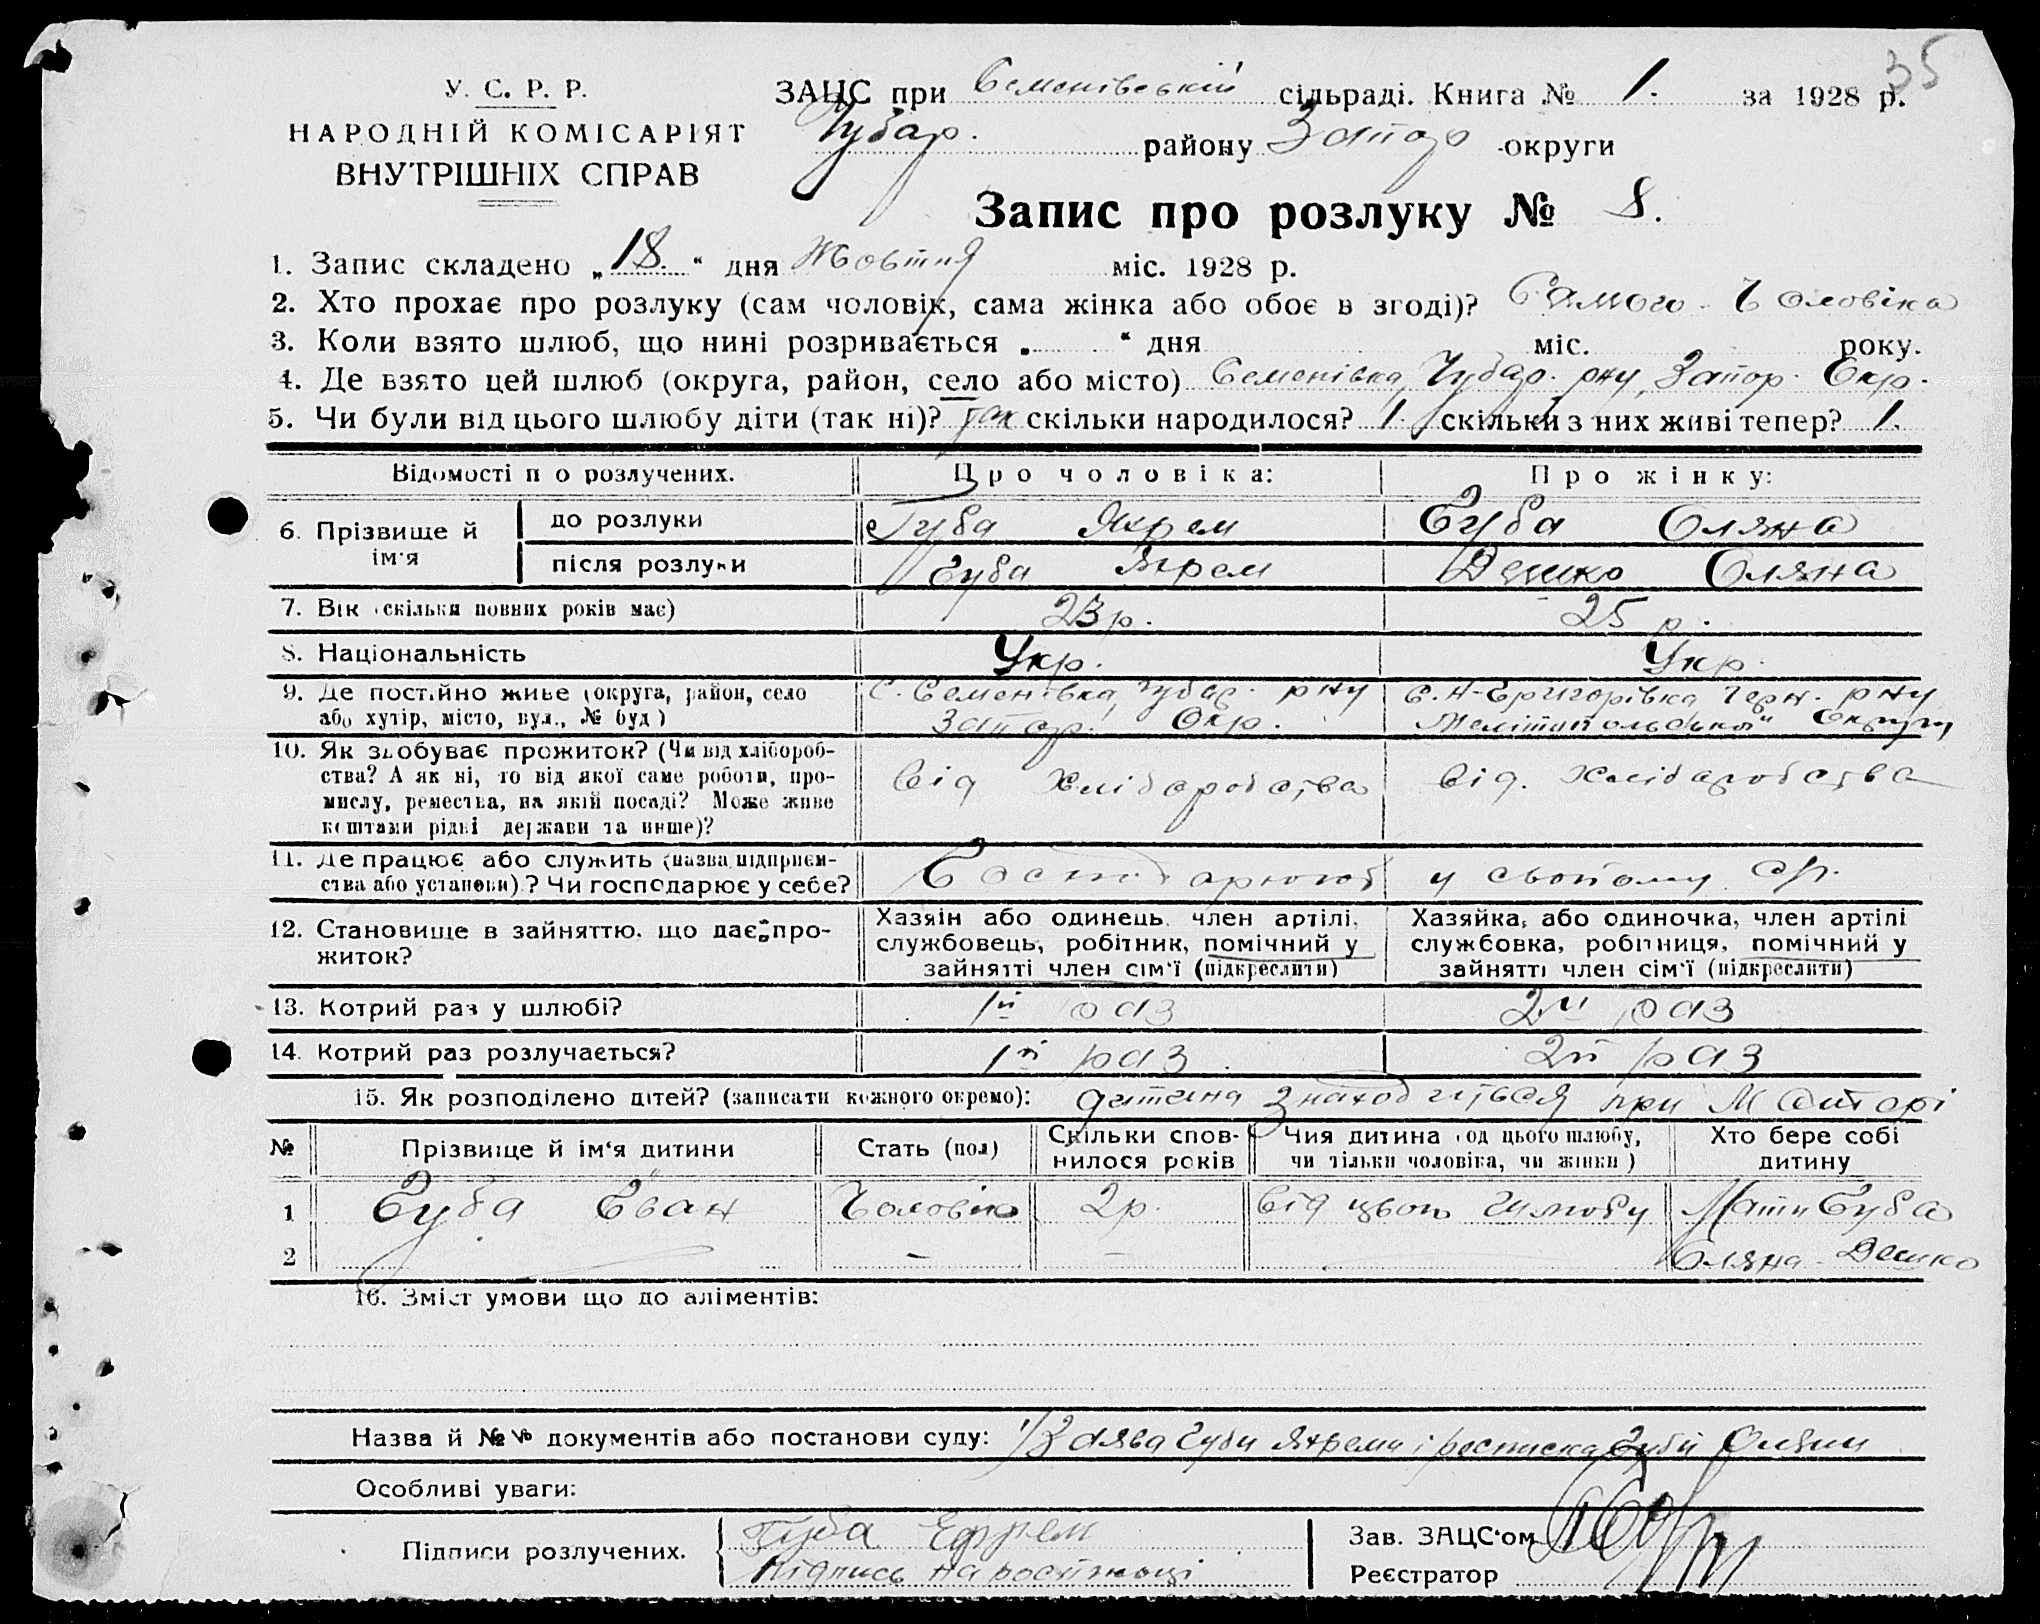 35
У. С. Р. Р.
НАРОДНІЙ КОМІСАРІЯТ
ВНУТРІШНІХ СПРАВ
ЗАЦС при Семенівській сільраді. Книга № 1. за 1928 р.
Чубар. району Запор округи
Запис про розлуку № 8.
1. Запис складено „18“ дня Жовтня міс. 1928 р.
2. Хто прохає про розлуку (сам чоловік, сама жінка або обоє в згоді)? Самого Чоловіка
3. Коли взято шлюб, що нині розривається „ “ дня міс. року.
4. Де взято цей шлюб (округа, район, село або місто) Семенівка, Чубар. р-ну, Запор. Окр.
5. Чи були від цього шлюбу діти (так ні)? так скільки народилося? 1 скільки з них живі тепер? 1.
Відомості п о розлучених. Про чоловіка: Про жінку:
6. Прізвище й ім'я до розлуки Губа Яхрем Губа Оляна
після розлуки Губа Яхрем Дешко Оляна
7. Вік (скільки повних років має) 23 р. 25 р.
8. Національність Укр. Укр.
9. Де постійно живе (округа, район, село С. Семенівка, Чубар. р-ну С. Н-Григорівка р-ну
або хутір, місто, вул., № буд) Запор. Окр. Мелітопольської Округи
10. Як здобуває прожиток? (Чи від хлібороб-
ства? А як ні, то від якої саме роботи, про-
мислу, ремества, на якій посаді? Може живе
коштами рідні держави та инше)? Від Хліборобства Від. Хліборобства
11. Де працює або служить (назва підприєм-
ства або установи)? Чи господарює у себе? Господарюють у свойому
12. Становище в зайняттю, що дає про-
житок?
Хазяін або одинець, член артілі,
службовець, робітник, помічний у
зайнятті член сім'ї (підкреслити)
Хазяйка, або одиночка, член артілі
службовка, робітниця, помічний у
зайнятті член сім'ї (підкреслити)
13. Котрий раз у шлюбі? 1й раз 2й раз
14. Котрий раз розлучається? 1й раз 2й раз
15. Як розподілено дітей? (записати кожного окремо): дитина знаходиться при Маторі
№ Прізвище й ім'я дитини Стать (пол) Скільки спов-
нилося років Чия дитина (од цього шлюбу,
чи тільки чоловіка, чи жінки) Хто бере собі
дитину
1 Губа Іван Чоловік 2р. Від цього шлюбу Мати Губа
2 — — Оляна Дешко
16. Зміст умови що до аліментів:
Назва й №№ документів або постанови суду: Заява Губи Яхрема і росписка Губи Оляни
Особливі уваги:
Підписи розлучених. Губа Ефрем
Підпись на
Зав. ЗАЦС'ом
Реєстратор